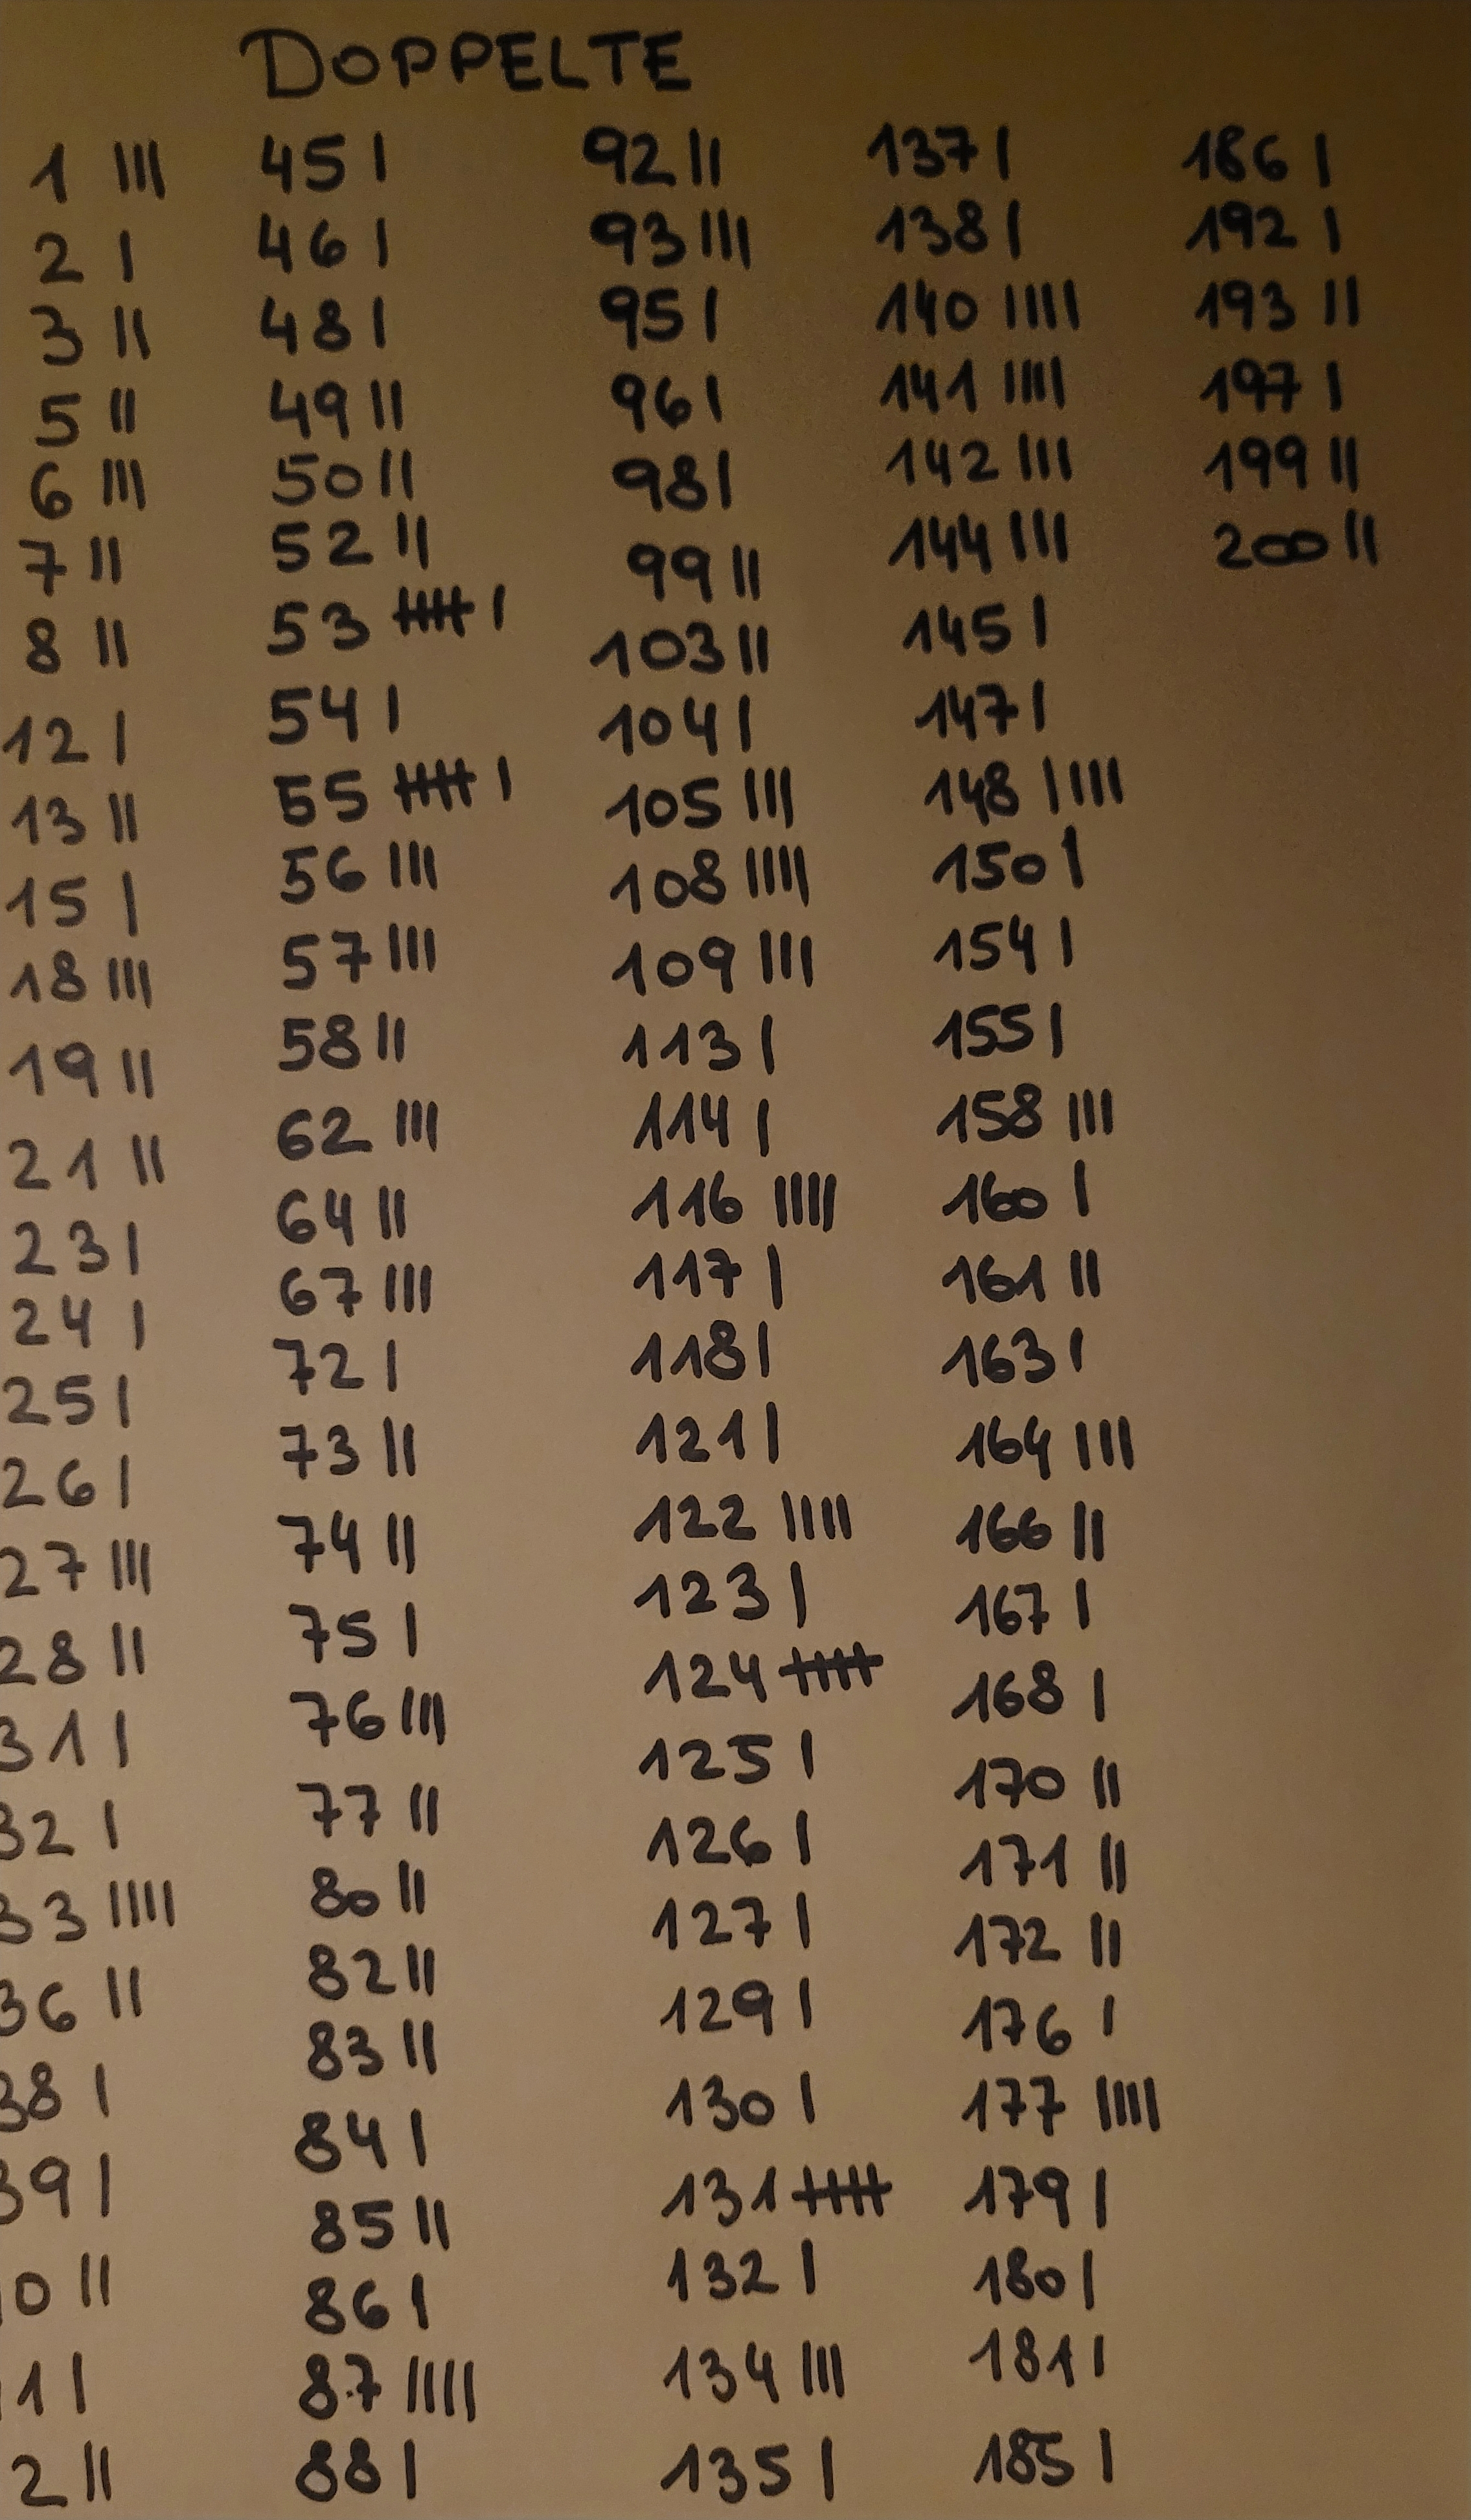 DOPPELTE
1 III
2 I
3 II
5 II
6 III
7 II
8 II
12 I
13 II
15 I
18 III
19 II
21 II
23 I
24 I
25 I
26 I
27 III
28 II
31 I
32 I
33 IIII
36 II
38 I
39 I
0 II
1 I
2 II
45 I
46 I
48 I
49 II
50 II
52 II
53 IIIII I
54 I
55 IIIII I
56 III
57 III
58 II
62 III
64 II
67 III
72 I
73 II
74 II
75 I
76 III
77 II
80 II
82 II
83 II
84 I
85 II
86 I
87 IIII
88 I
92 II
93 III
95 I
96 I
98 I
99 II
103 II
104 I
105 III
108 IIII
109 III
113 I
114 I
116 IIII
117 I
118 I
121 I
122 IIII
123 I
124 IIIII
125 I
126 I
127 I
129 I
130 I
131 IIIII
132 I
134 III
135 I
137 I
138 I
140 IIII
141 IIII
142 III
144 III
145 I
147 I
148 IIII
150 I
154 I
155 I
158 III
160 I
161 II
163 I
164 III
166 II
167 I
168 I
170 II
171 II
172 II
176 I
177 IIII
179 I
180 I
181 I
185 I
186 I
192 I
193 II
197 I
199 II
200 II